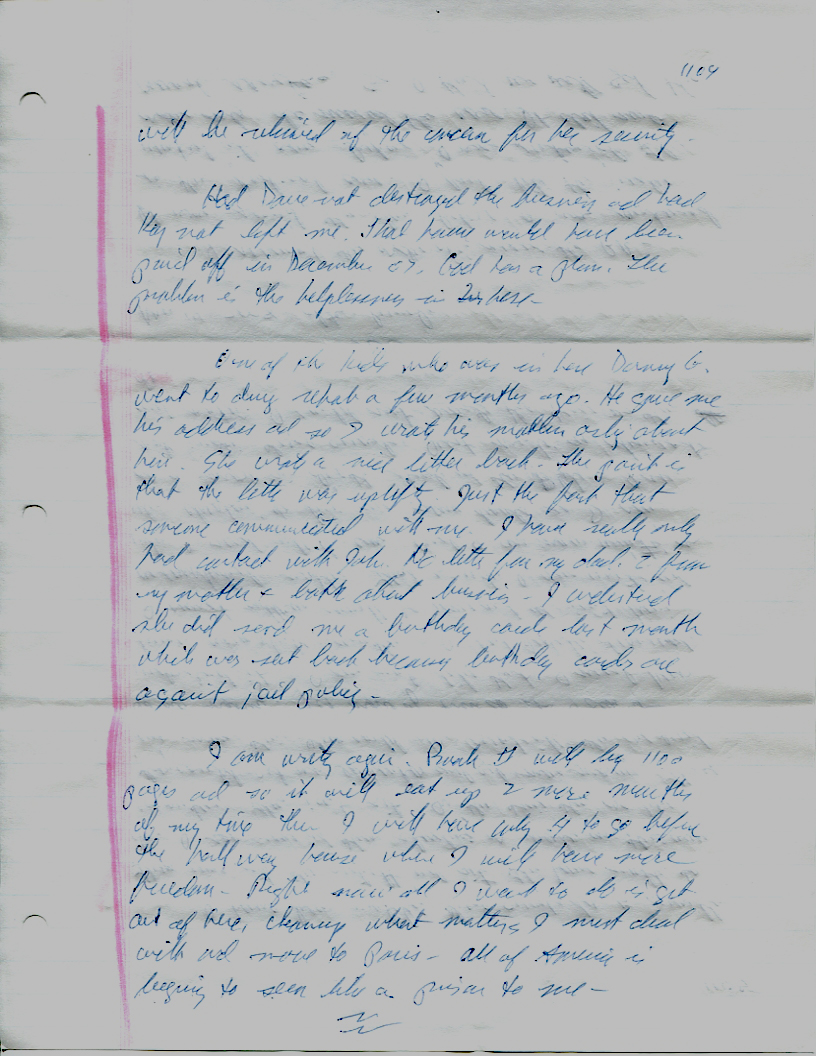 1109
will be relieved of the concern for her security.
Had Dave not destroyed the business ad had
Kay not left me. That house would have been
paid off in December 07. God has a plan. The
problem is the helplessness in here-
One of the kids who was in here Danny G.
went to drug rehab a few months ago. He gave me
his address ad so I wrote his mother asky about
him. She wrote a nice letter back. The point is
that the lette was uplifty. Just the fact that
someone communicated with me. I have really only
had contact with letter from my dad. 2 from
my mother & both about business - I understand
she did send me a birthday cards last month
which was sent back because birthday cards are
against jail policy-
I am writy again. Book will be 1100
pages ad so it will eat up 2 more months
of my time then I will have only to go before
the half way house where I will have more
freedom - Right now all I want to do is get
out of here, cleanup what matters I must deal
with ad move to Paris - all of America is
beging to seem like a prison to me-